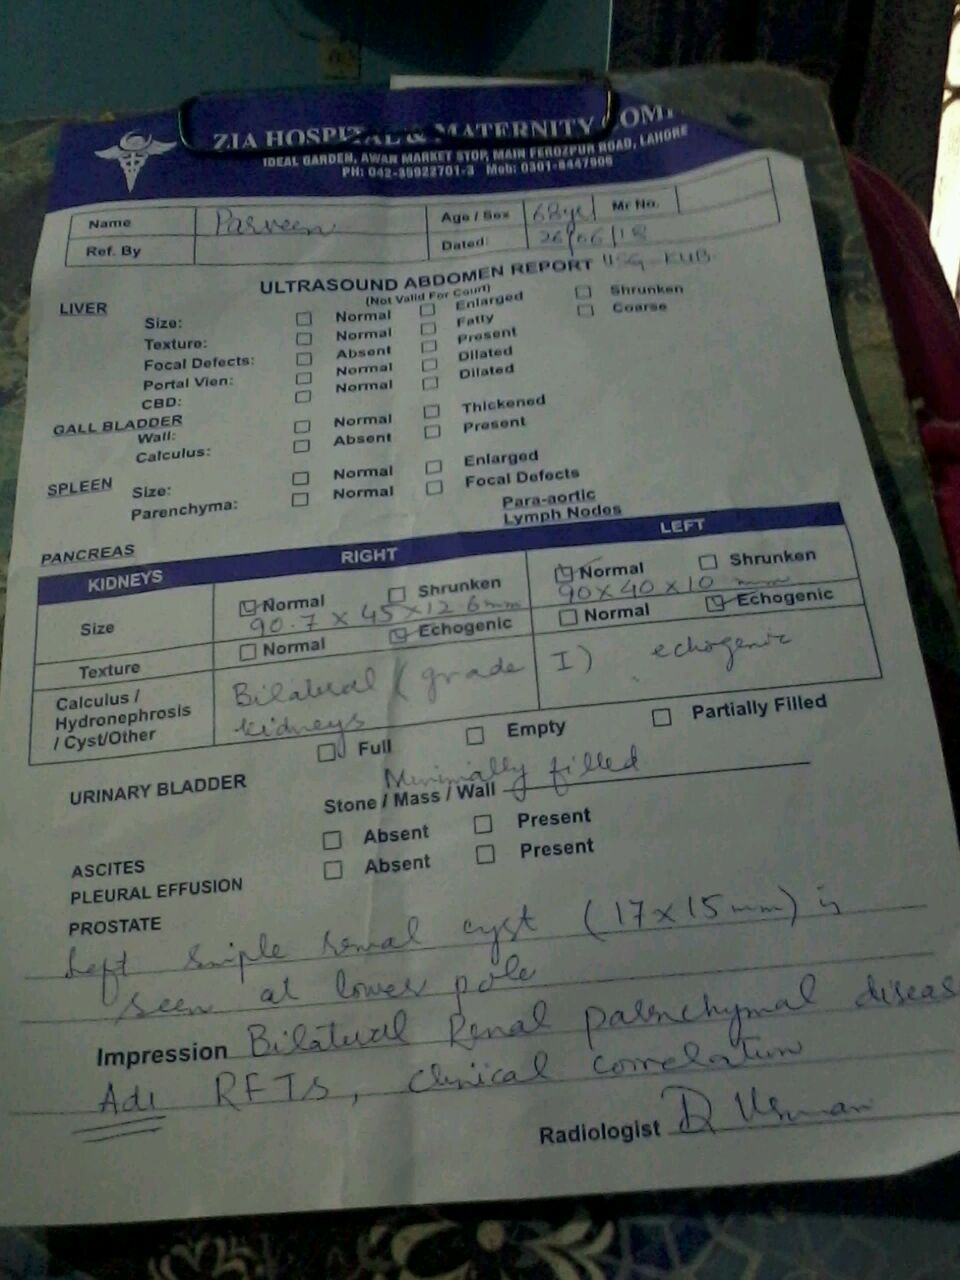 ZIA HOSPITAL & MATERNITY
IDEAL GARDEN, AWAN MARKET STOP, MAIN FEROZPUR ROAD, LAHORE
PH: 042-35922701-3 Mob: 0301-8447906
Name Parveen Age / Sex 68yr Mr No.
Ref. By Dated: 26/06/18
ULTRASOUND ABDOMEN REPORT USG-KUB
(Not Valid For Court)
LIVER
Size: Normal Enlarged Shrunken
Texture: Normal Fatty Coarse
Focal Defects: Absent Present
Portal Vien: Normal Dilated
CBD: Normal Dilated
GALL BLADDER
Wall: Normal Thickened
Calculus: Absent Present
SPLEEN
Size: Normal Enlarged
Parenchyma: Normal Focal Defects
PANCREAS Para-aortic
Lymph Nodes
KIDNEYS RIGHT LEFT
Size Normal Shrunken Normal Shrunken
90.7 x 45 x 12.6mm 90 x 40 x 10 mm
Texture Normal Echogenic Normal Echogenic
Calculus / Bilateral (grade I) echogenic
Hydronephrosis kidneys
/ Cyst/Other
URINARY BLADDER Full Empty Partially Filled
Minimally filled
Stone / Mass / Wall
ASCITES Absent Present
PLEURAL EFFUSION Absent Present
PROSTATE
Left simple renal cyst (17x15mm) is
seen at lower pole
Impression Bilateral Renal parenchymal diseas
Adv RFTS, clinical correlation
Radiologist Dr Usman